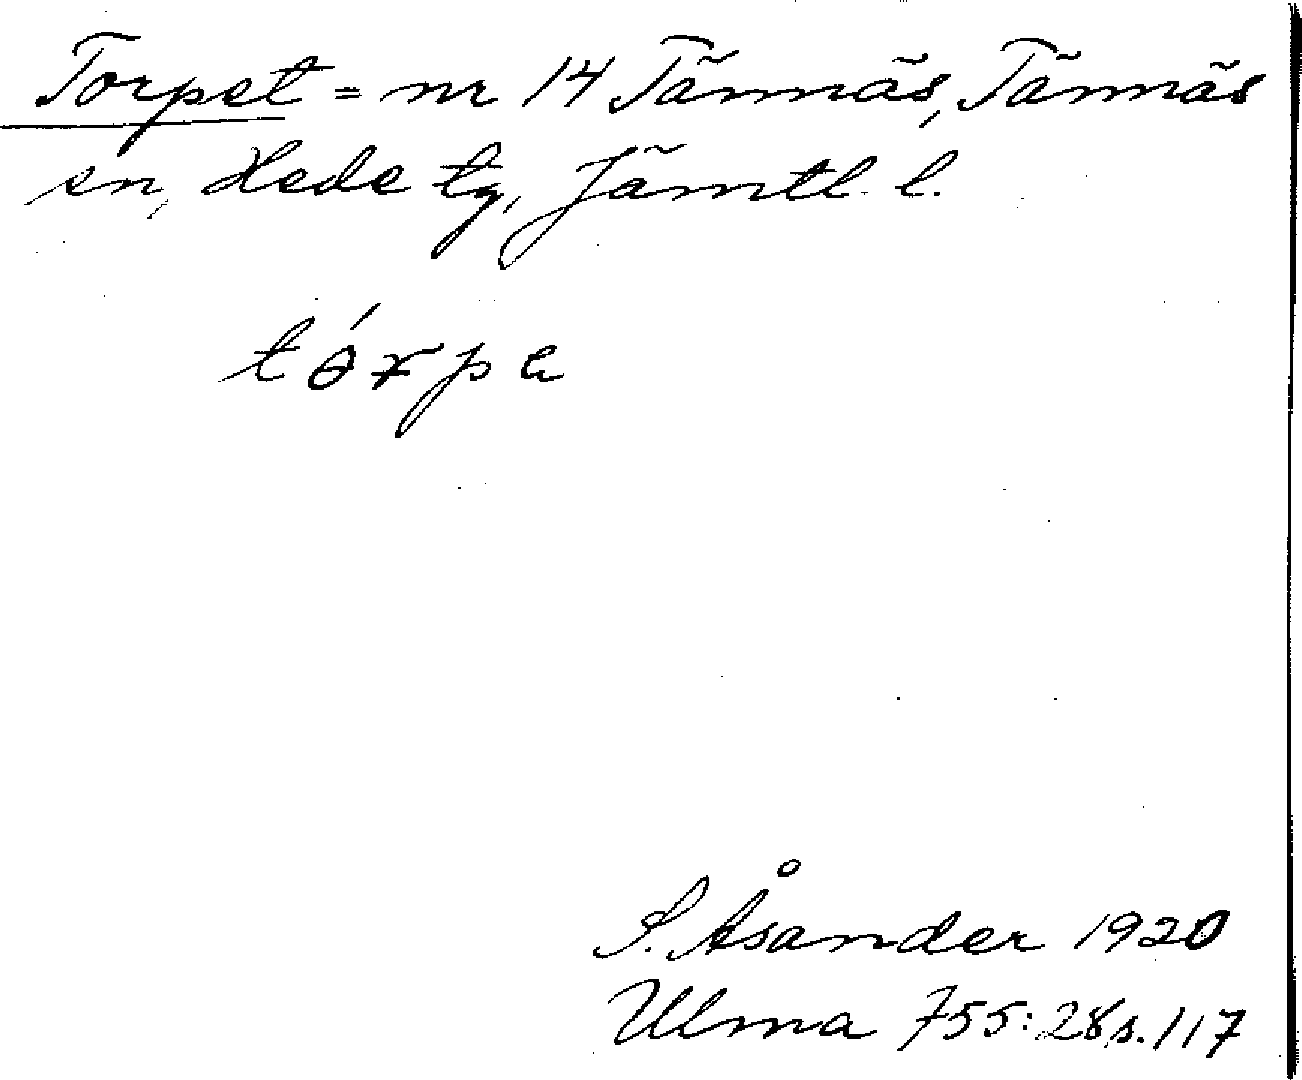 Torpet = nr 14 Tännäs, Tännäs
sn, Hede tg, Jämtl. l.
tɵ́rpa
S. Åsander 1920
Ulma 755:28 s. 117